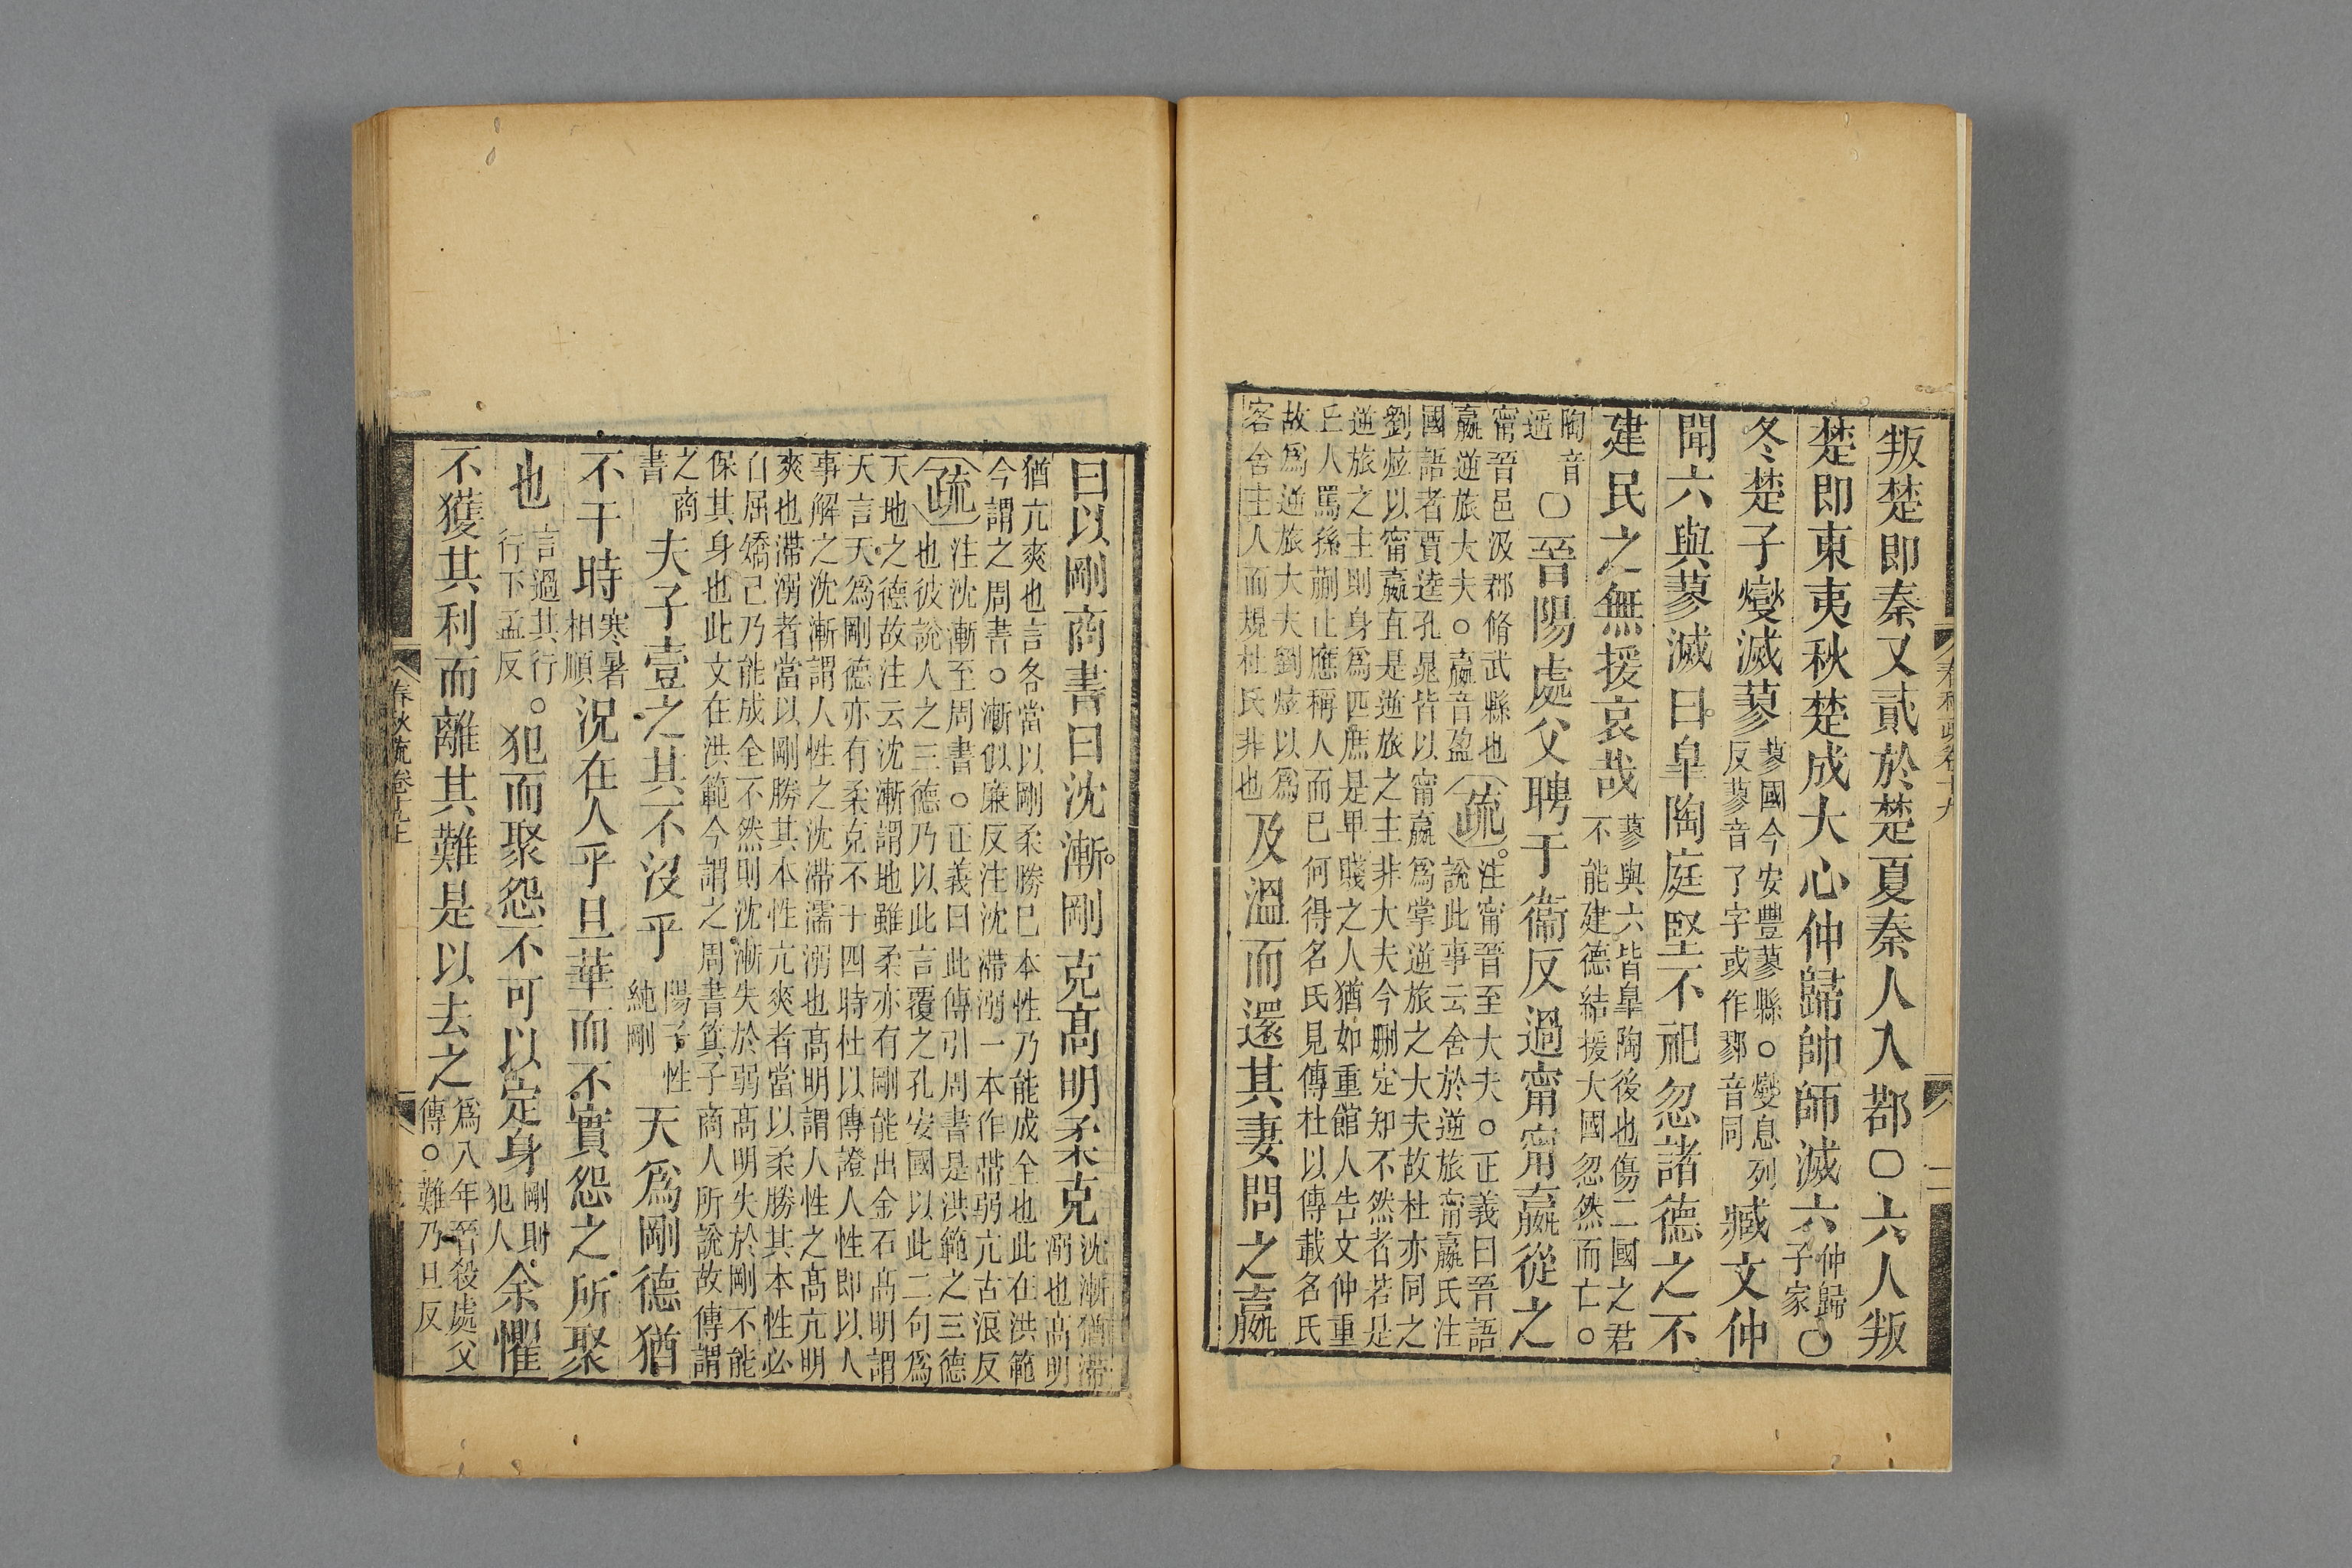 叛楚即秦又貳於楚夏秦人入鄀〇六人叛
楚即東夷秋楚成大心仲歸帥師滅六
仲歸
子家
〇
冬楚子燮滅蓼
蓼國今安豐蓼縣〇燮息列
反蓼音了字或作鄝音同
臧文仲
聞六與蓼滅曰皐陶庭堅不祀忽諸德之不
建民之無援哀哉
蓼與六皆皐陶後也傷二國之君
不能建德結援大國忽然而亡〇
陶音
遥
〇晉陽處父聘于衞反過甯甯嬴從之
甯晉邑汲郡脩武縣也
嬴逆旅大夫〇嬴音盈
疏
注甯晉至大夫〇正義曰晉語
說此事云舍於逆旅甯嬴氏注
國語者賈逵孔晁皆以甯嬴爲掌逆旅之大夫故杜亦同之
劉炫以甯嬴直是逆旅之主非大夫今刪定知不然者若是
逆旅之主則身爲匹庶是卑賤之人猶如重館人告文仲重
丘人罵孫蒯止應稱人而已何得名氏見傳杜以傳載名氏
故爲逆旅大夫劉炫以爲
客舍主人而規杜氏非也
及溫而還其妻問之嬴
曰以剛商書曰沈漸剛克高明柔克
沈漸猶滯
溺也高明
猶亢爽也言各當以剛柔勝已本性乃能成全也此在洪範
今謂之周書〇漸似廉反注沈滯溺一本作滯弱亢古浪反
疏
注沈漸至周書〇正義曰此傳引周書是洪範之三德
也彼說人之三德乃以此言覆之孔安國以此二句爲
天地之德故注云沈漸謂地雖柔亦有剛能出金石高明謂
天言天爲剛德亦有柔克不干四時杜以傳證人性即以人
事解之沈漸謂人性之沈滯濡溺也高明謂人性之高亢明
爽也滯溺者當以剛勝其本性亢爽者當以柔勝其本性必
自屈矯己乃能成全不然則沈漸失於弱高明失於剛不能
保其身也此文在洪範今謂之周書箕子商人所說故傳謂
之商
書
夫子壹之其不沒乎
陽子性
純剛
天爲剛德猶
不干時
寒暑
相順
況在人乎且華而不實怨之所聚
也
言過其行
行下孟反
〇犯而聚怨不可以定身
剛則
犯人
余懼
不獲其利而離其難是以去之
爲八年晉殺處父
傳〇難乃旦反
春秋疏卷十九上